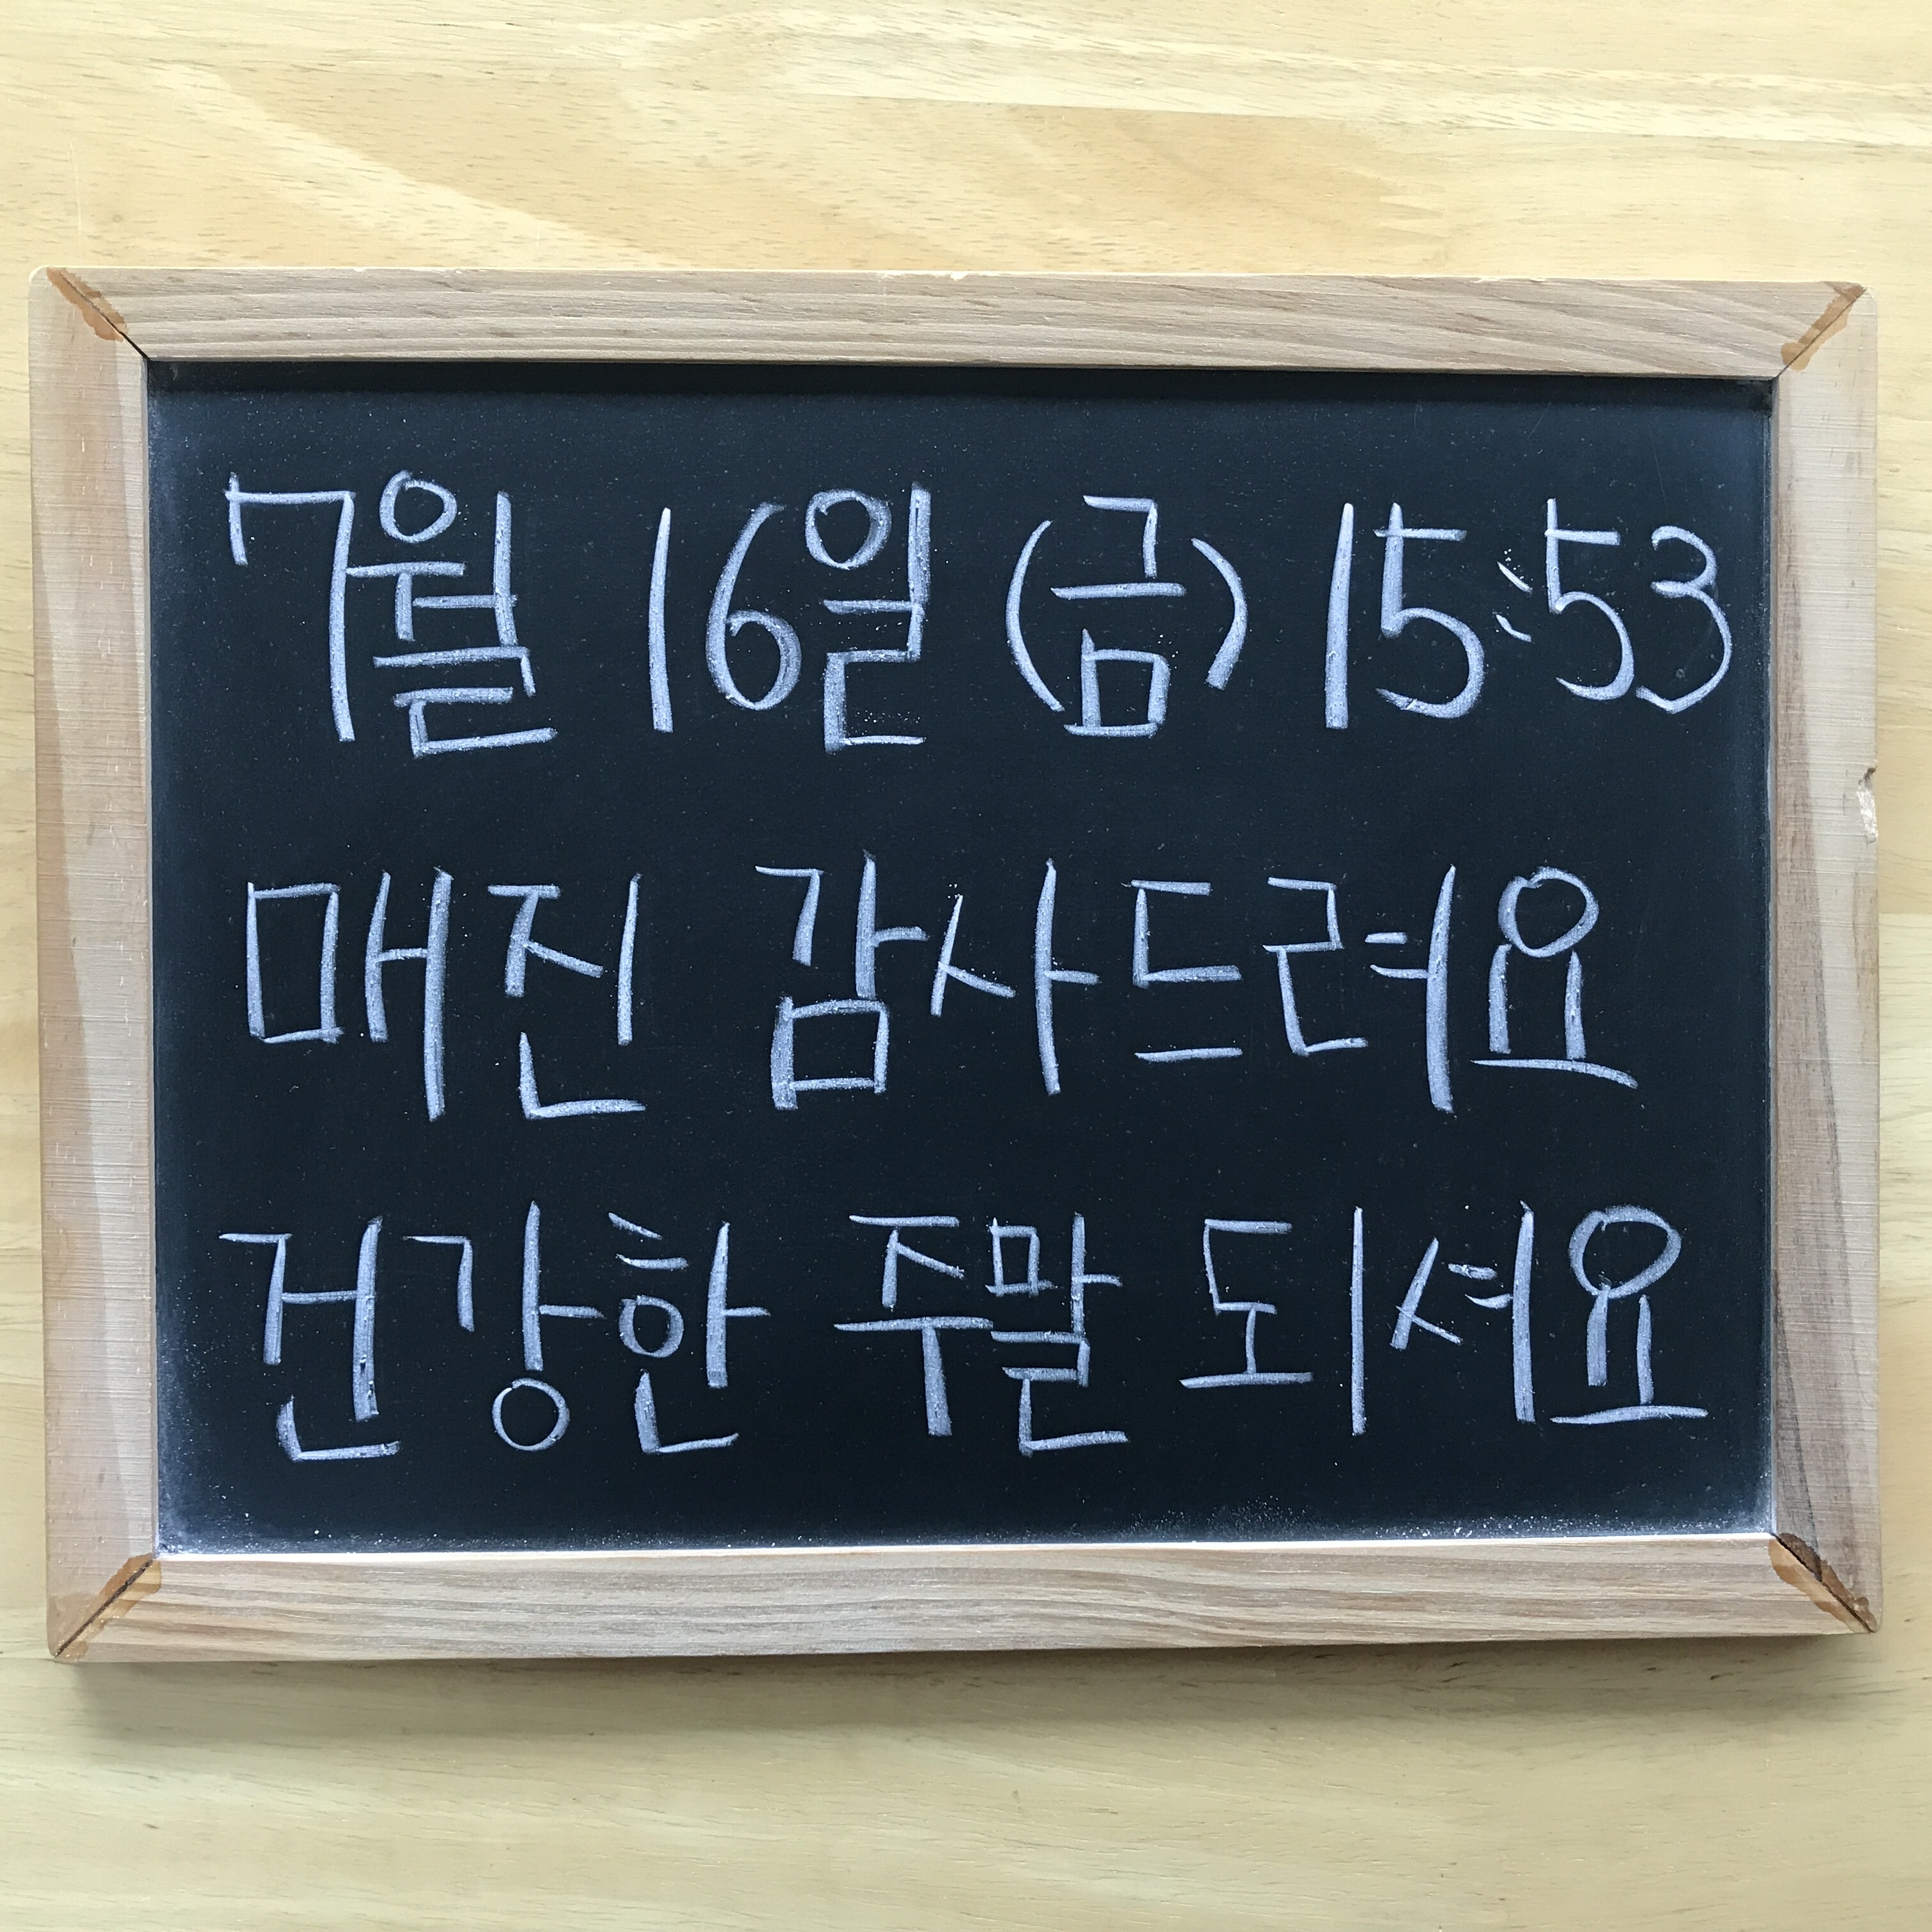 7월 16일 (금) 15:53
매진 감사드려요
건강한 주말 되셔요